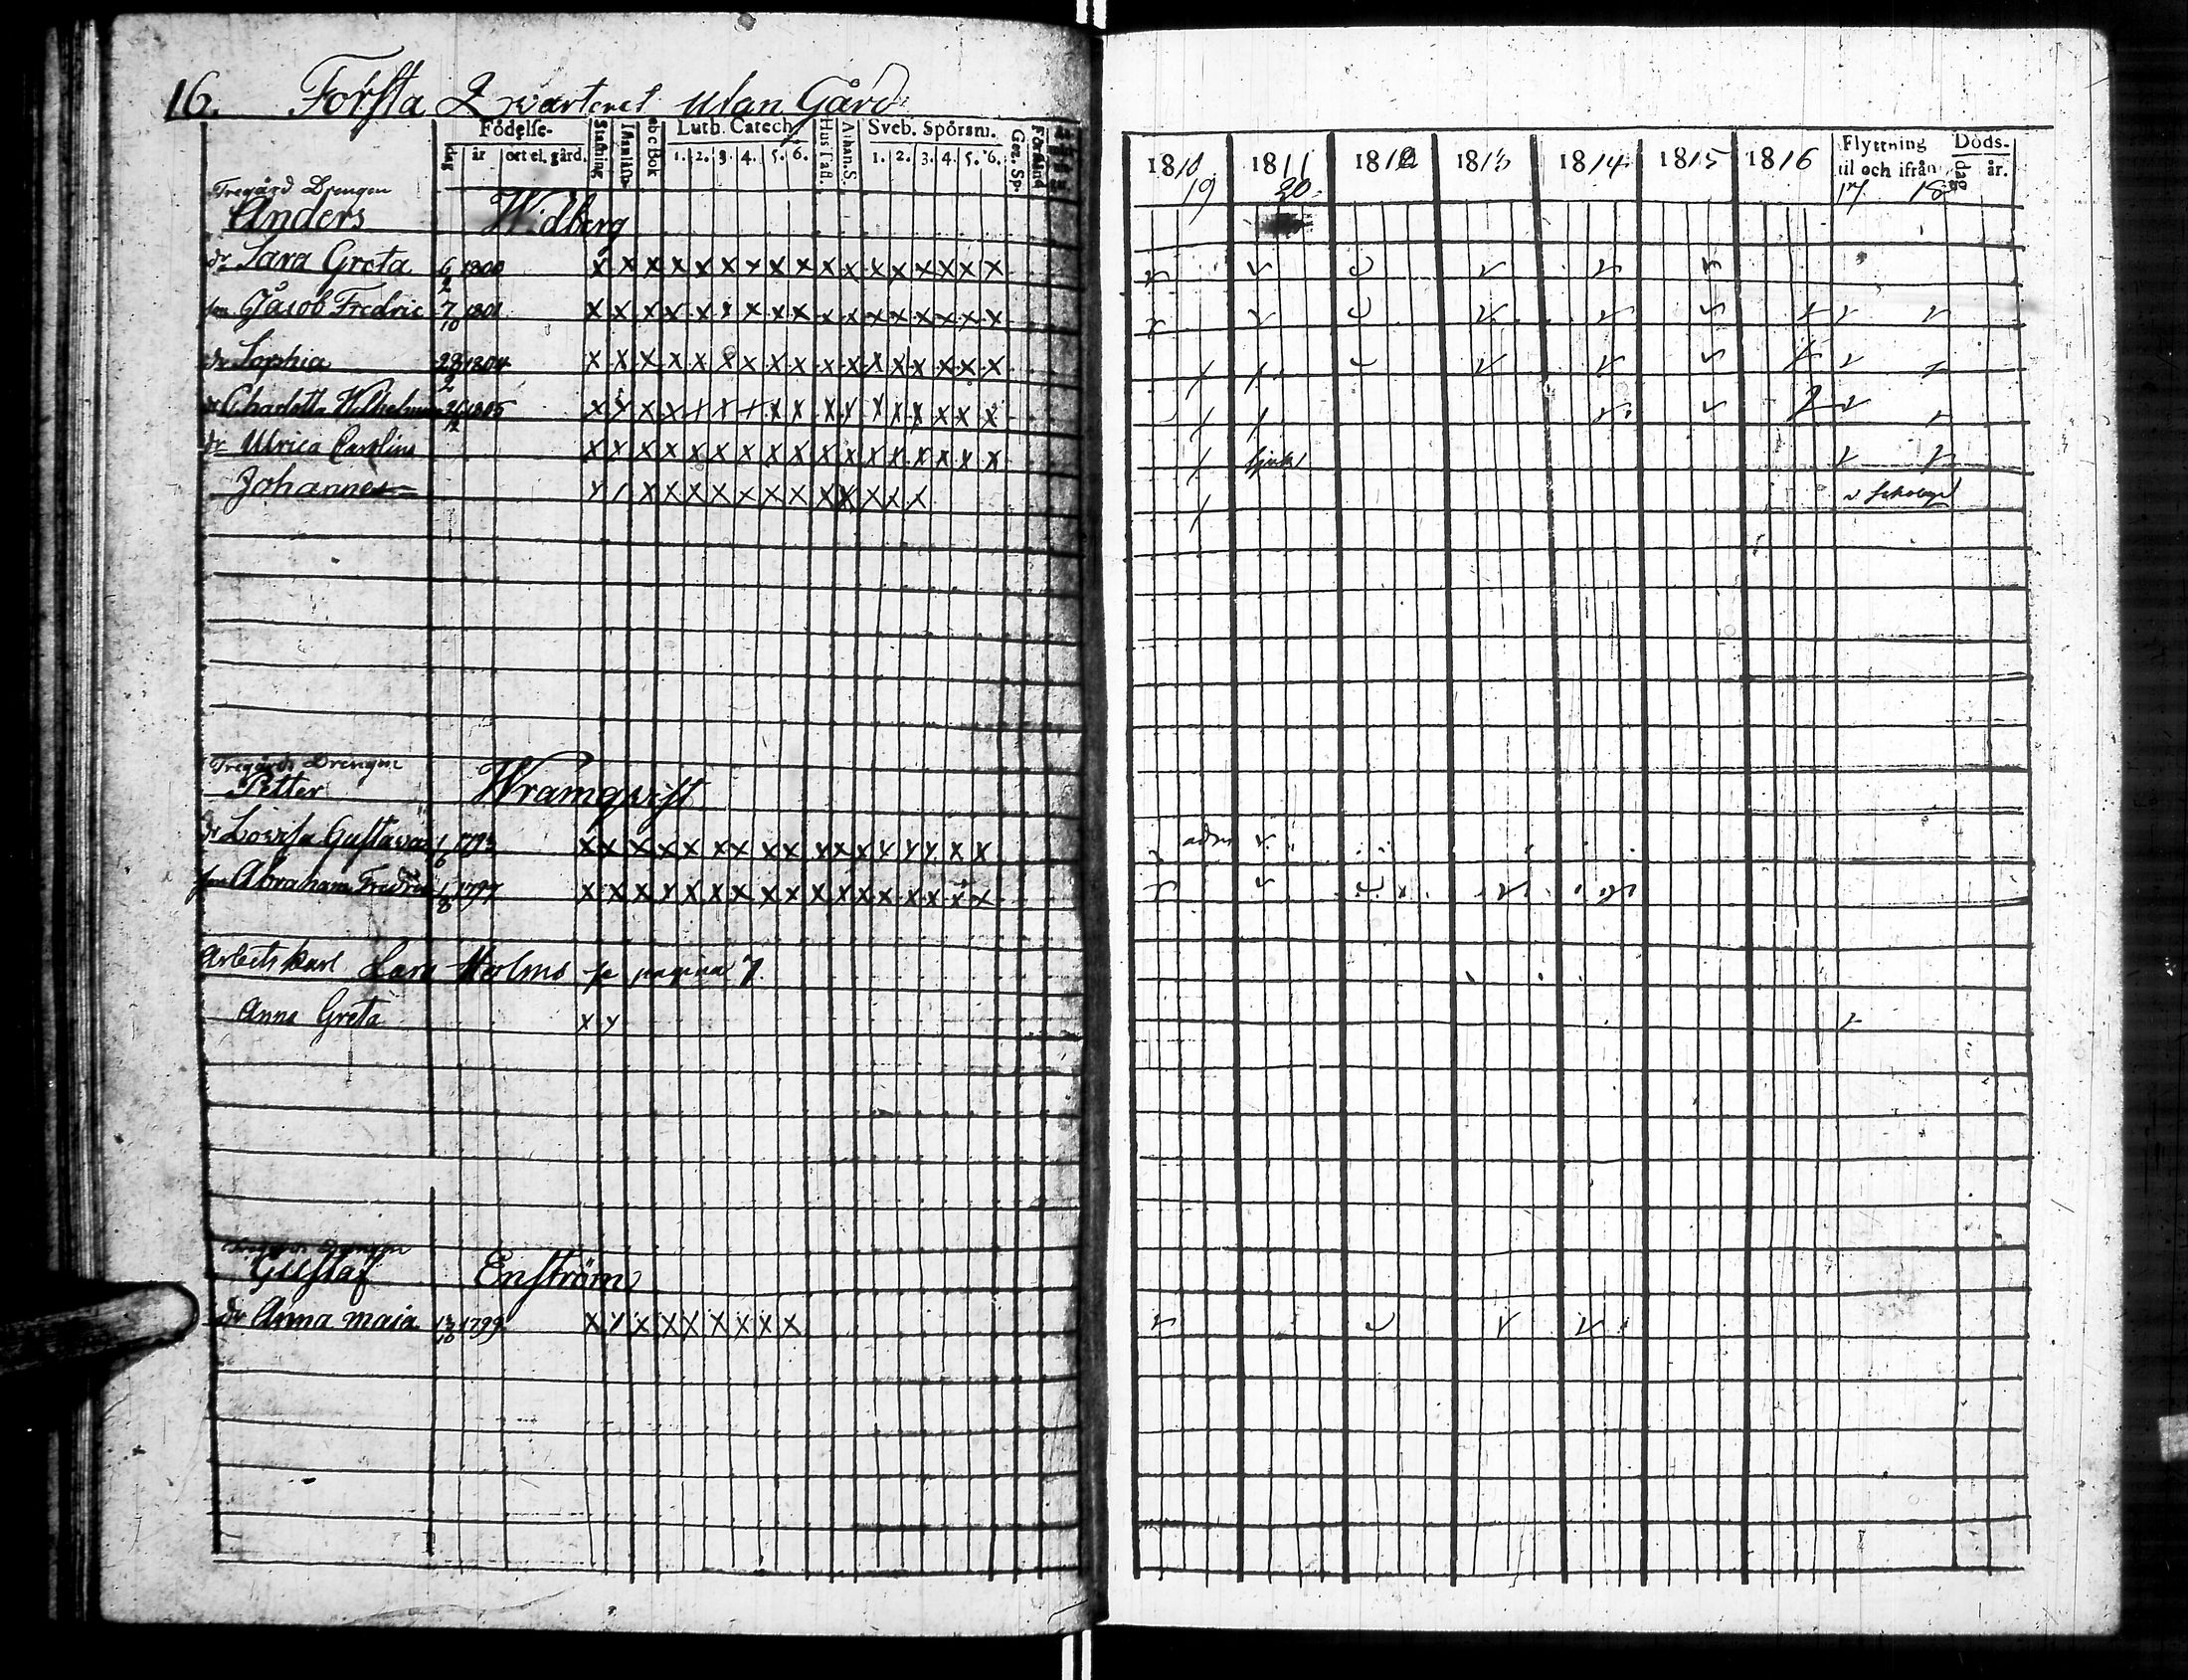 16. Första Qwarteret utan Gård
Födelse- Stafning Innanläsn. abc Bok Luth. Catech. Hus Tafl. Athan. S. Sveb. Spörsm. Gez. Sp. Förstånd
dag år ort el. gård. 1. 2. 3. 4. 5. 6. 1. 2. 3. 4. 5. 6.
1810 1811 1812 1813 1814 1815 1816 Flyttning til och ifrån Döds-
19 20 17 18 dag år.
Tregård Drengen
Anders Widberg
dr Sara Greta 6/2 1800 x x x x x x x x x x x x x x x x x
son Jacob Fredric 7/10 1801 x x x x x x x x x x x x x x x x x
dr Sophia 28/2 1804 x x x x x x x x x x x x x x x x x
dr Charlotta Wilhelmina 26/12 1805 x x x x x x x x x x x x x x x x x
dr Ulrica Carolina x x x x x x x x x x x x x x x x x sjuk
Johannes x x x x x x x x x x x x x x
Tregårds Drengen
Petter Wramqvist
dr Lovisa Gustava 1/6 1793 x x x x x x x x x x x x x x x x x adm
son Abraham Fredric 1/8 1797 x x x x x x x x x x x x x x x x x
Arbets karl Lars Holms se pagina 7.
Anna Greta x x
Tregårds Drengen
Gustaf Enström
dr Anna Maja 13/10 1799 x x x x x x x x x